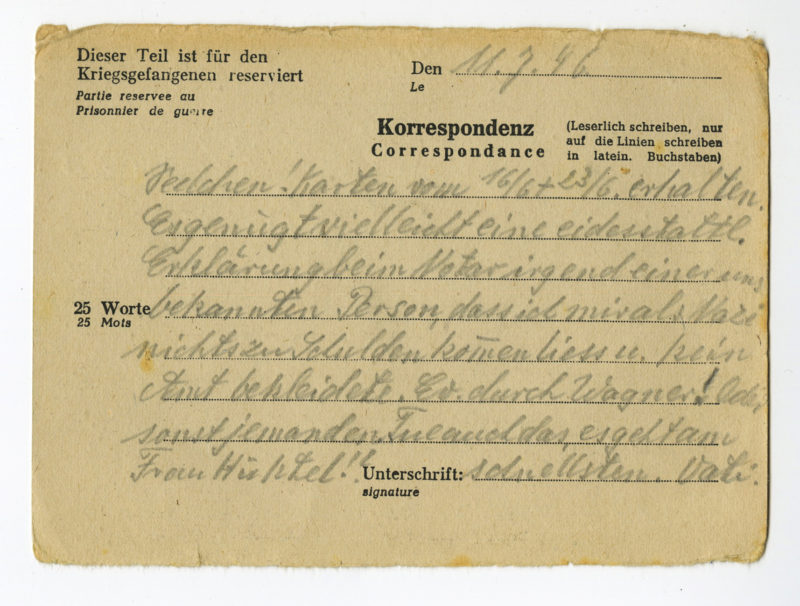 Dieser Teil ist für den
Kriegsgefangenen reserviert
Partie reservee au
Prisonnier de guerre
Den 11.7.46
Le
Korrespondenz
Correspondance
(Leserlich schreiben, nur
auf die Linien schreiben
in latein. Buchstaben)
! Karten vom 16/6 + 23/6. erhalten.
Es genügt vielleicht eine eidesstattl.
Erklärung beim Notar irgend einer uns
25 Worte bekannten Person, dass ich mir als Nazi
25 Mots
nichts zu Schulden kommen liess u. kein
Amt bekleidete. Ev. durch Wagner! Oder
sonst jemanden. Tue auch das, es geht am
Frau !! Unterschrift: schnellsten. Vati.
signature